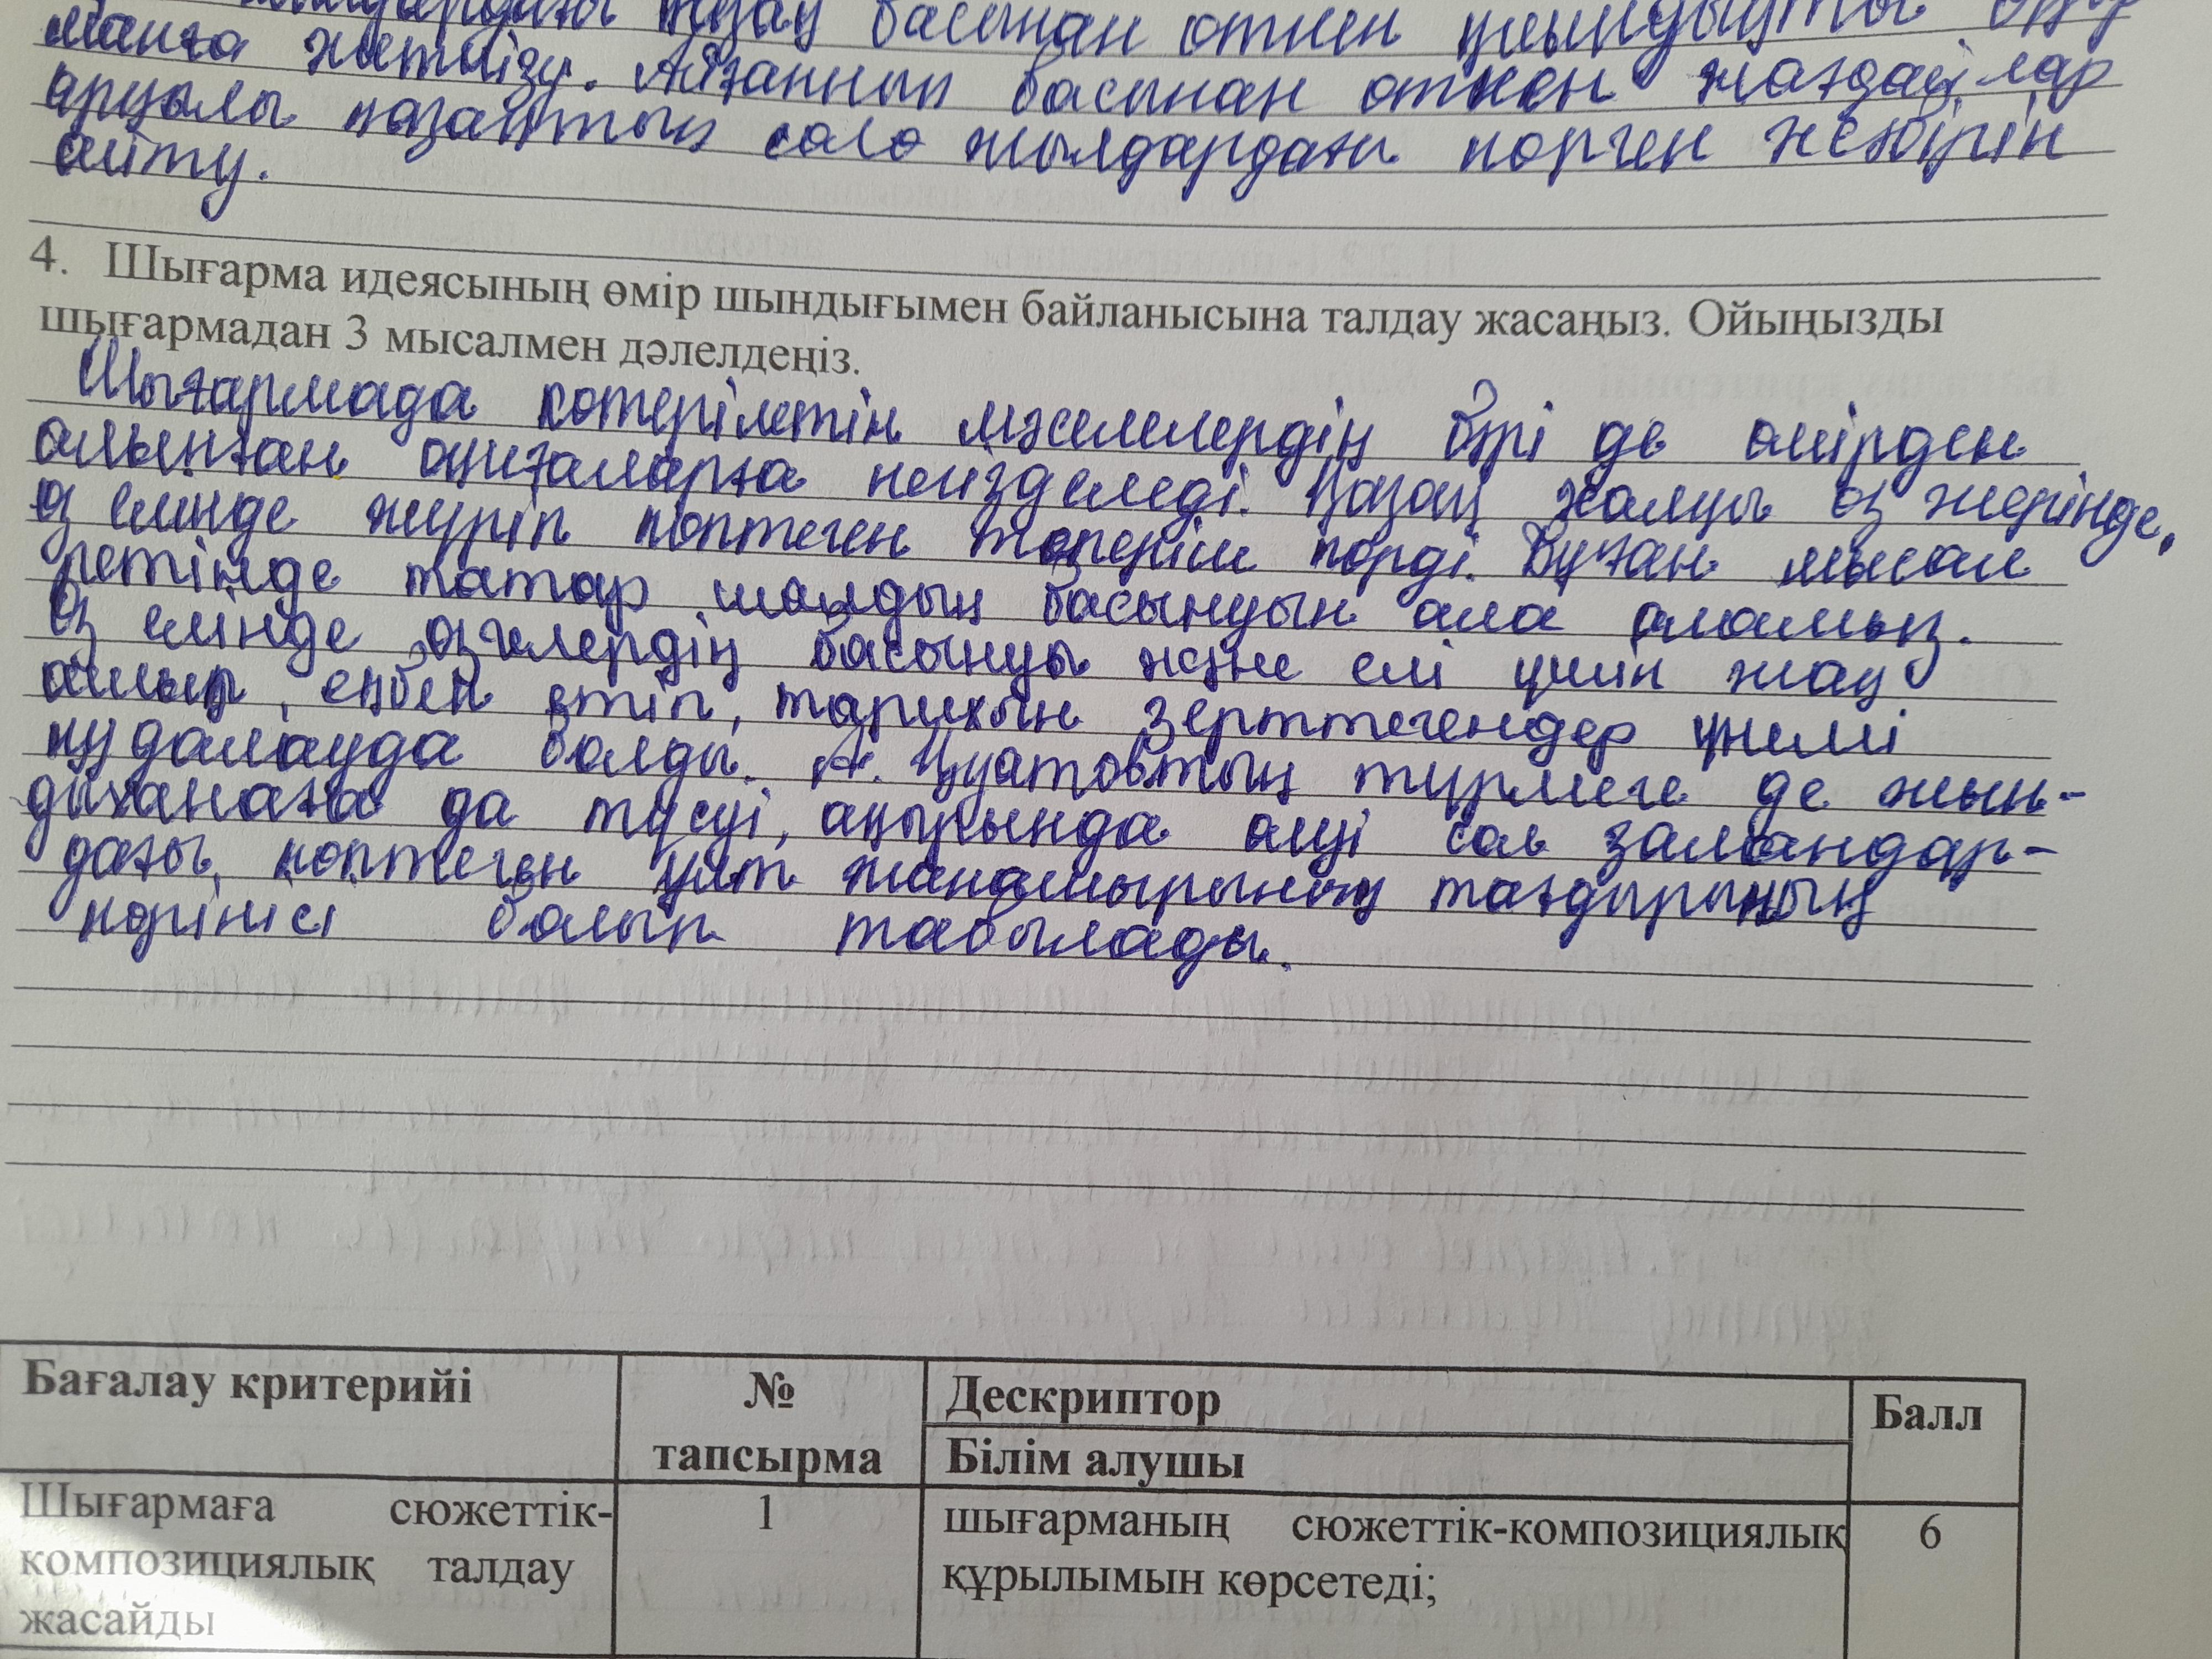 басынан өткен қиындықты
манға жеткізу. Айғанның басынан өткен жағдайлар
арқылы қазақтың сол жылдардағы көрген жәбірін
айту.
4. Шығарма идеясының өмір шындығымен байланысына талдау жасаңыз. Ойыңызды
шығармадан 3 мысалмен дәлелдеңіз.
Шығармада көтерілетін мәселелердің бәрі де өмірден
алынған оқиғаларға негізделеді. Қазақ халқы өз жерінде,
өз елінде жүріп көптеген теперіш көрді. Бұған мысал
ретінде татар шалдың басынуын ала аламыз.
Өз елінде өзгелердің басынуы және елі үшін жау
алып, еңбек етіп, тарихын зерттегендер үнемі
қудалауда болды. А. Қуатовтың түрмеге де жын-
дыханаға да түсуі, ақырында өлуі сол замандар-
дағы көптеген ұлт жанашырының тағдырының
көрінісі болып табылады.
Бағалау критерийі № тапсырма Дескриптор Балл
Білім алушы
Шығармаға сюжеттік- 1 шығарманың сюжеттік-композициялық 6
композициялық талдау құрылымын көрсетеді;
жасайды